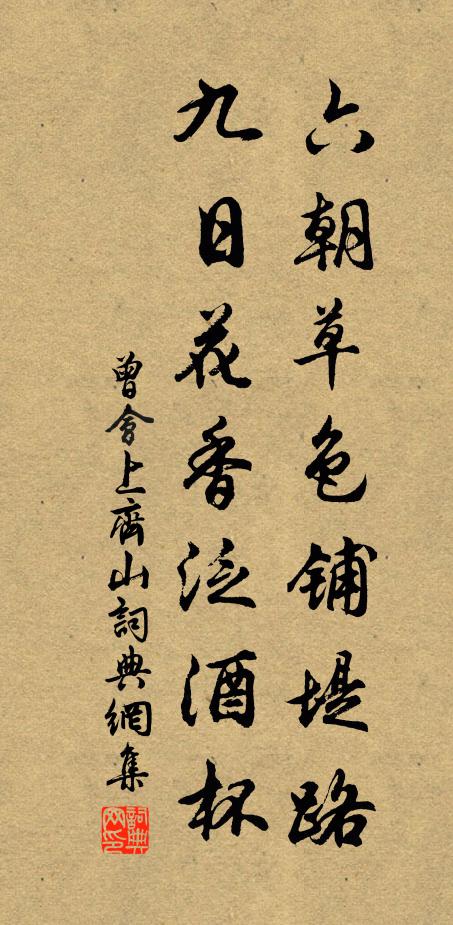 六朝草色鋪堤路
九日花香泛酒杯
曾會上齊山詞典網集
詞典網印